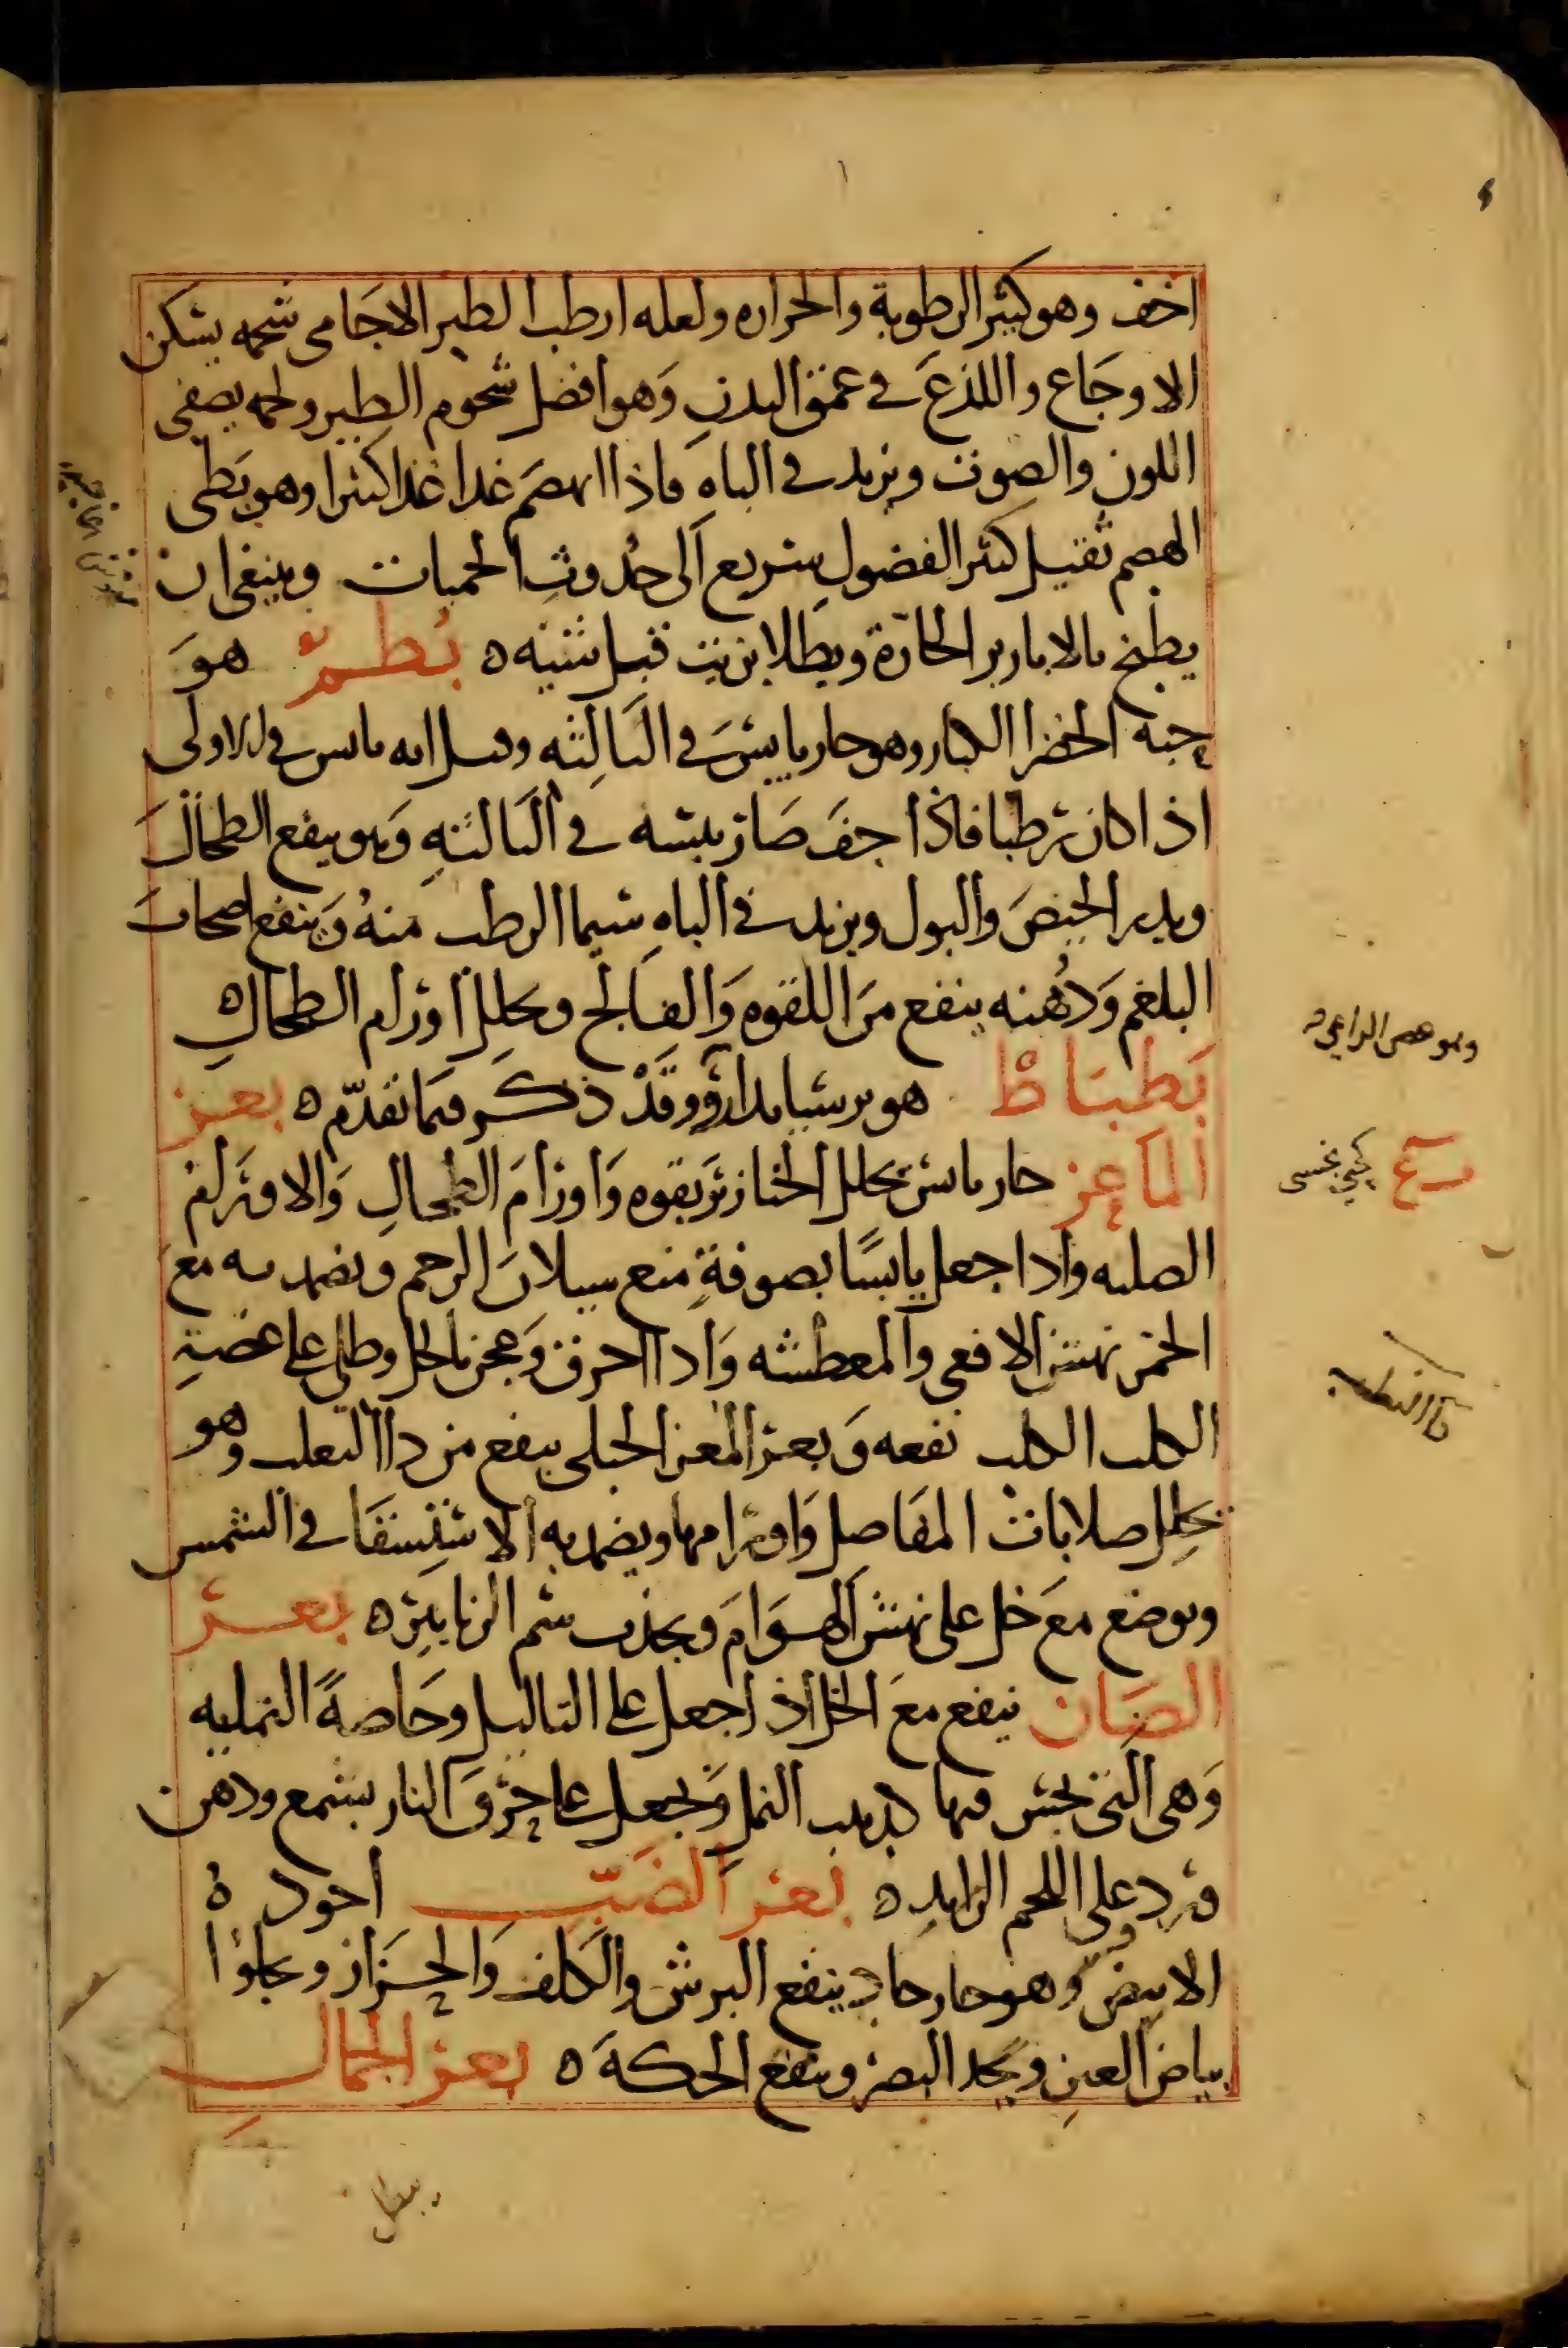 اخف وهو كثير الرطوبة والحراره ولعله ارطب الطير الاجامى شحمه يسكن
الاوجاع واللذع فى عمق البدن وهو افضل شحوم الطير ولحمه يصفى
اللون والصوت ويزيد فى الباه فاذا انهضم غدا غذا كثيرا وهو بطى
الهضم ثقيل كثير الفضول سريع الى حدوث الحميات وينبغى ان
يطبخ بالابازير الحارة ويطلا بزيت قبل شيه ه بطم هو
حبه الخضرا الكبار وهو حار يابس فى الثالثه وقيل انه يابس فى الاولى
اذا كان رطبا فاذا جف صار يبسه فى الثالثه وهو ينفع الطحال
ويدر الحيض والبول ويزيد فى الباه سيما الرطب منه وينفع اصحاب
البلغم ودهنه ينفع من اللقوه والفالج ويحلل اورام الطحال ه
بطباط هو برسيا بدارو وقد ذكر فيما تقدم ه بعر
الماعز حار يابس يحلل الخنازير بقوه واورام الطحال والاورام
الصلبه واذا جعل يابسا بصوفة منع سيلان الرحم ويضمد به مع
الخمر نهش الافعى والمعطشه واذا احرق وعجن بالخل وطلى على عضة
الكلب الكلب نفعه وبعر المعز الجبلى ينفع من دا الثعلب وهو
يحلل صلابات المفاصل واورامها ويضمد به الاستسقا فى الشمس
ويوضع مع خل على نهش الهوام ويجذب سم الزنابير ه بعر
الضان ينفع مع الخل اذا جعل على الثاليل وخاصة النمليه
وهى التى يحس فيها كدبيب النمل ويجعل على حرق النار بشمع ودهن
ورد وعلى اللحم الزايد ه بعر الضب اجوده
الابيض وهو حار حاد ينفع البرش والكلف والحزاز ويجلوا
بياض العين ويحد البصر وينفع الحكة ه بعر الجمال
وهو عصى الراعى